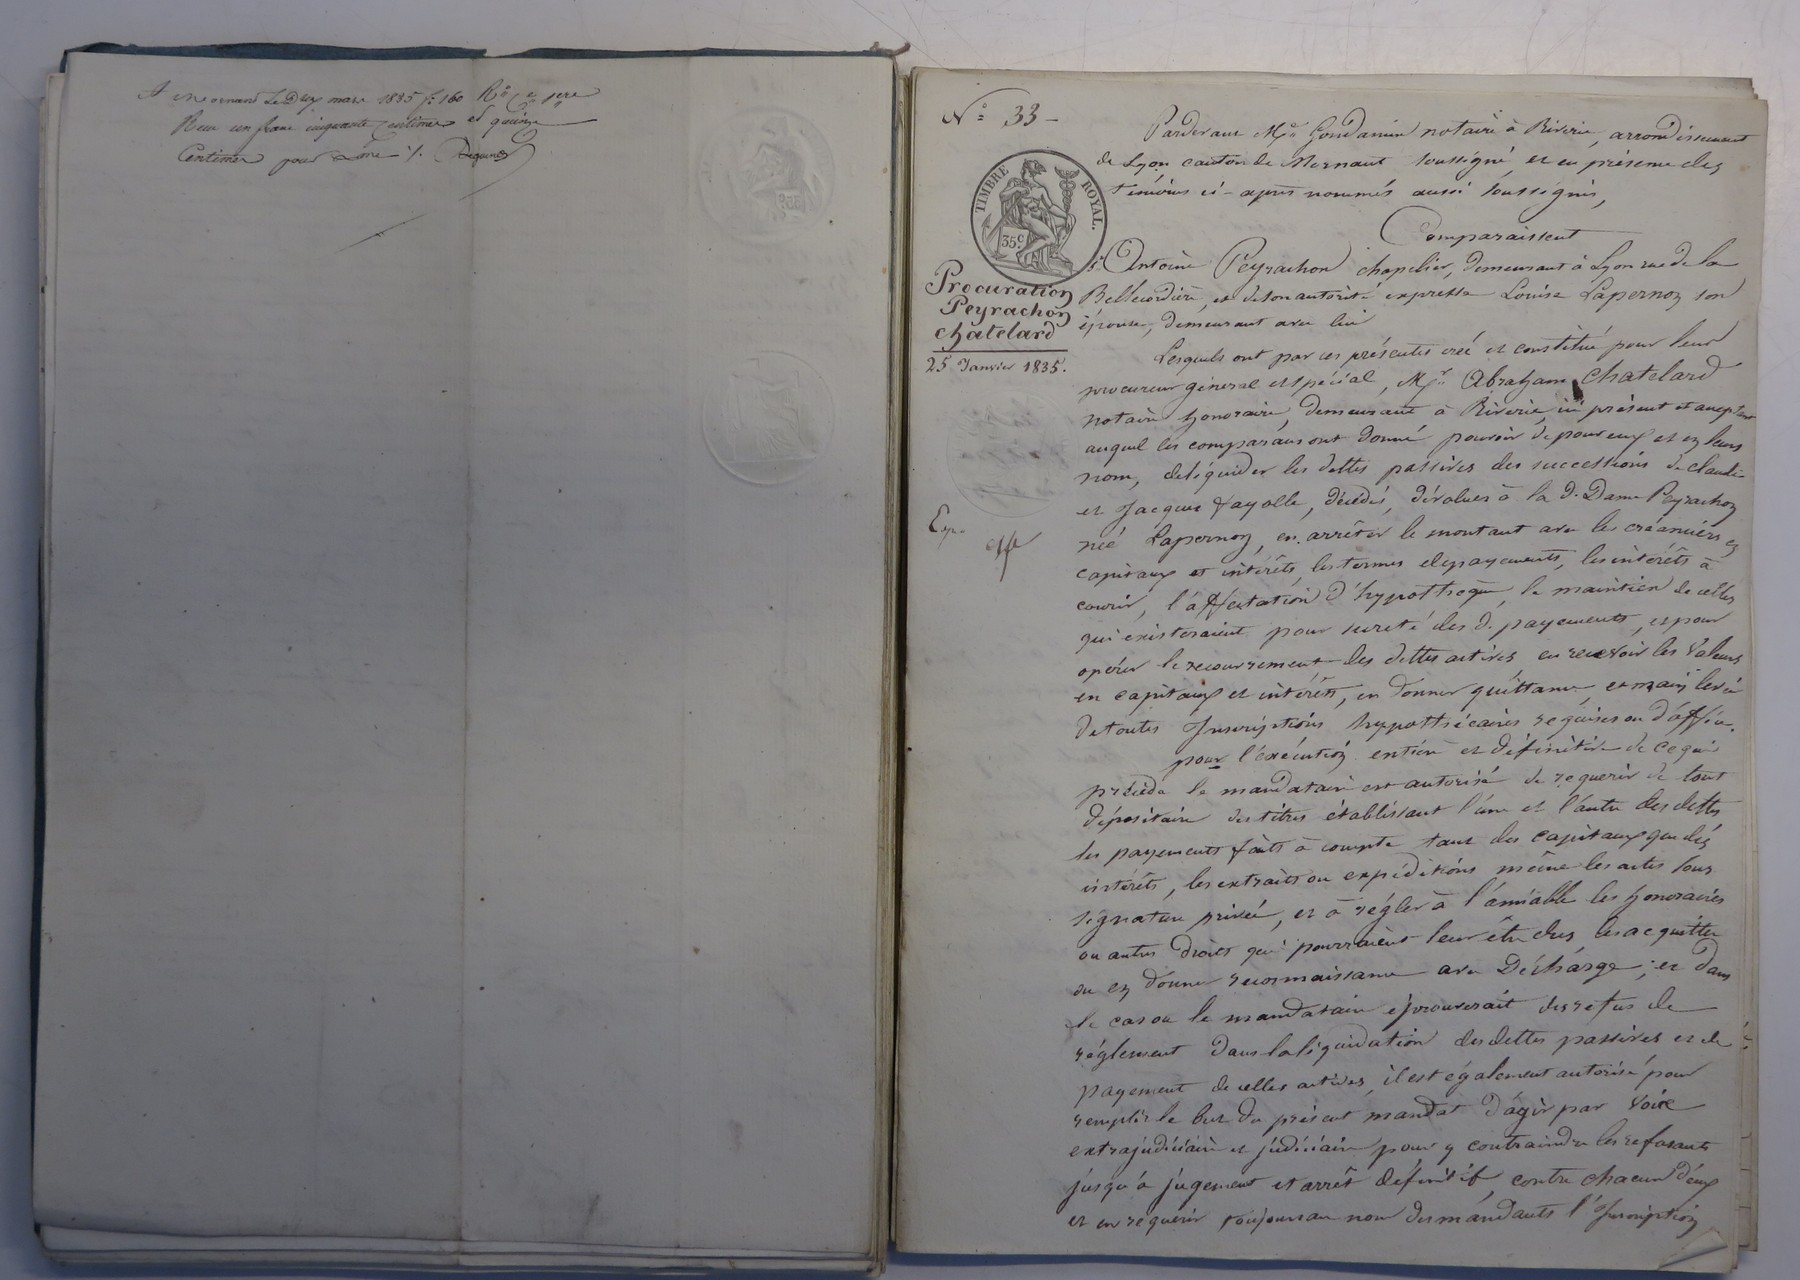 A Mornant le Dix mars 1835 fo 160 Ro Ce 1ere
Reçu un franc cinquante Centimes et quinze
Centimes pour Xme ./.
No 33 -
TIMBRE ROYAL.
35 c
Procuration
Peyrachon
chatelard
25 Janvier 1835.
Exp.
Pardevant Me Goudamin notaire à Riverie, arrondissement
de Lyon canton de Mornant soussigné, et en présence des
témoins ci-après nommés aussi soussignés,
Comparaissent
Sr Antoine Peyrachon chapelier, demeurant à Lyon rue de la
Bellecordière, et de son autorité expresse Louise Lapernoz son
épouse, demeurant avec lui
Lesquels ont par ces présentes créé et constitué pour leur
procureur général et spécial, Mr Abraham Chatelard
notaire honoraire, demeurant à Riverie, ici présent et acceptant
auquel les comparans ont donné pouvoir de pour eux et en leurs
nom, de liquider les dettes passives des successions de claude
et Jacques Fayolle, décédés, dévolues à la d. Dame Peyrachon
née Lapernoz, en arrêter le montant avec les créanciers en
capitaux et intérêts, les termes de payements, les intérêts à
courir, l'affectation d'hypothèque, le maintien de celles
qui existeraient pour sureté des d. payements, et pour
opérer le recouvrement des dettes actives en recevoir les valeurs
en capitaux et intérêts, en donner quittance, et main levée
de toutes Inscriptions hypothécaires requises ou d'office.
pour l'exécution entière et définitive de ce qui
précède le mandataire est autorisé de requérir de tout
dépositaire des titres établissant l'une et l'autre des dettes
les payements faits à compte tant des capitaux que des
intérêts, les extraits ou expéditions même les actes sous
signature privée, et à régler à l'amiable les honoraires
ou autres droits qui pourraient leur être dus, les acquitter
ou en donner reconnaissance avec Décharge; et dans
le cas ou le mandataire éprouverait des refus de
réglement dans la liquidation des dettes passives et de
payement de celles actives, il est également autorisé pour
remplir le but du présent mandat d'agir par voie
extrajudiciaire et judiciaire pour y contraindre les refusants
jusqu'à jugement et arrêt définitif, contre chacun d'eux
et en requérir toujours au nom des mandants l'Inscription